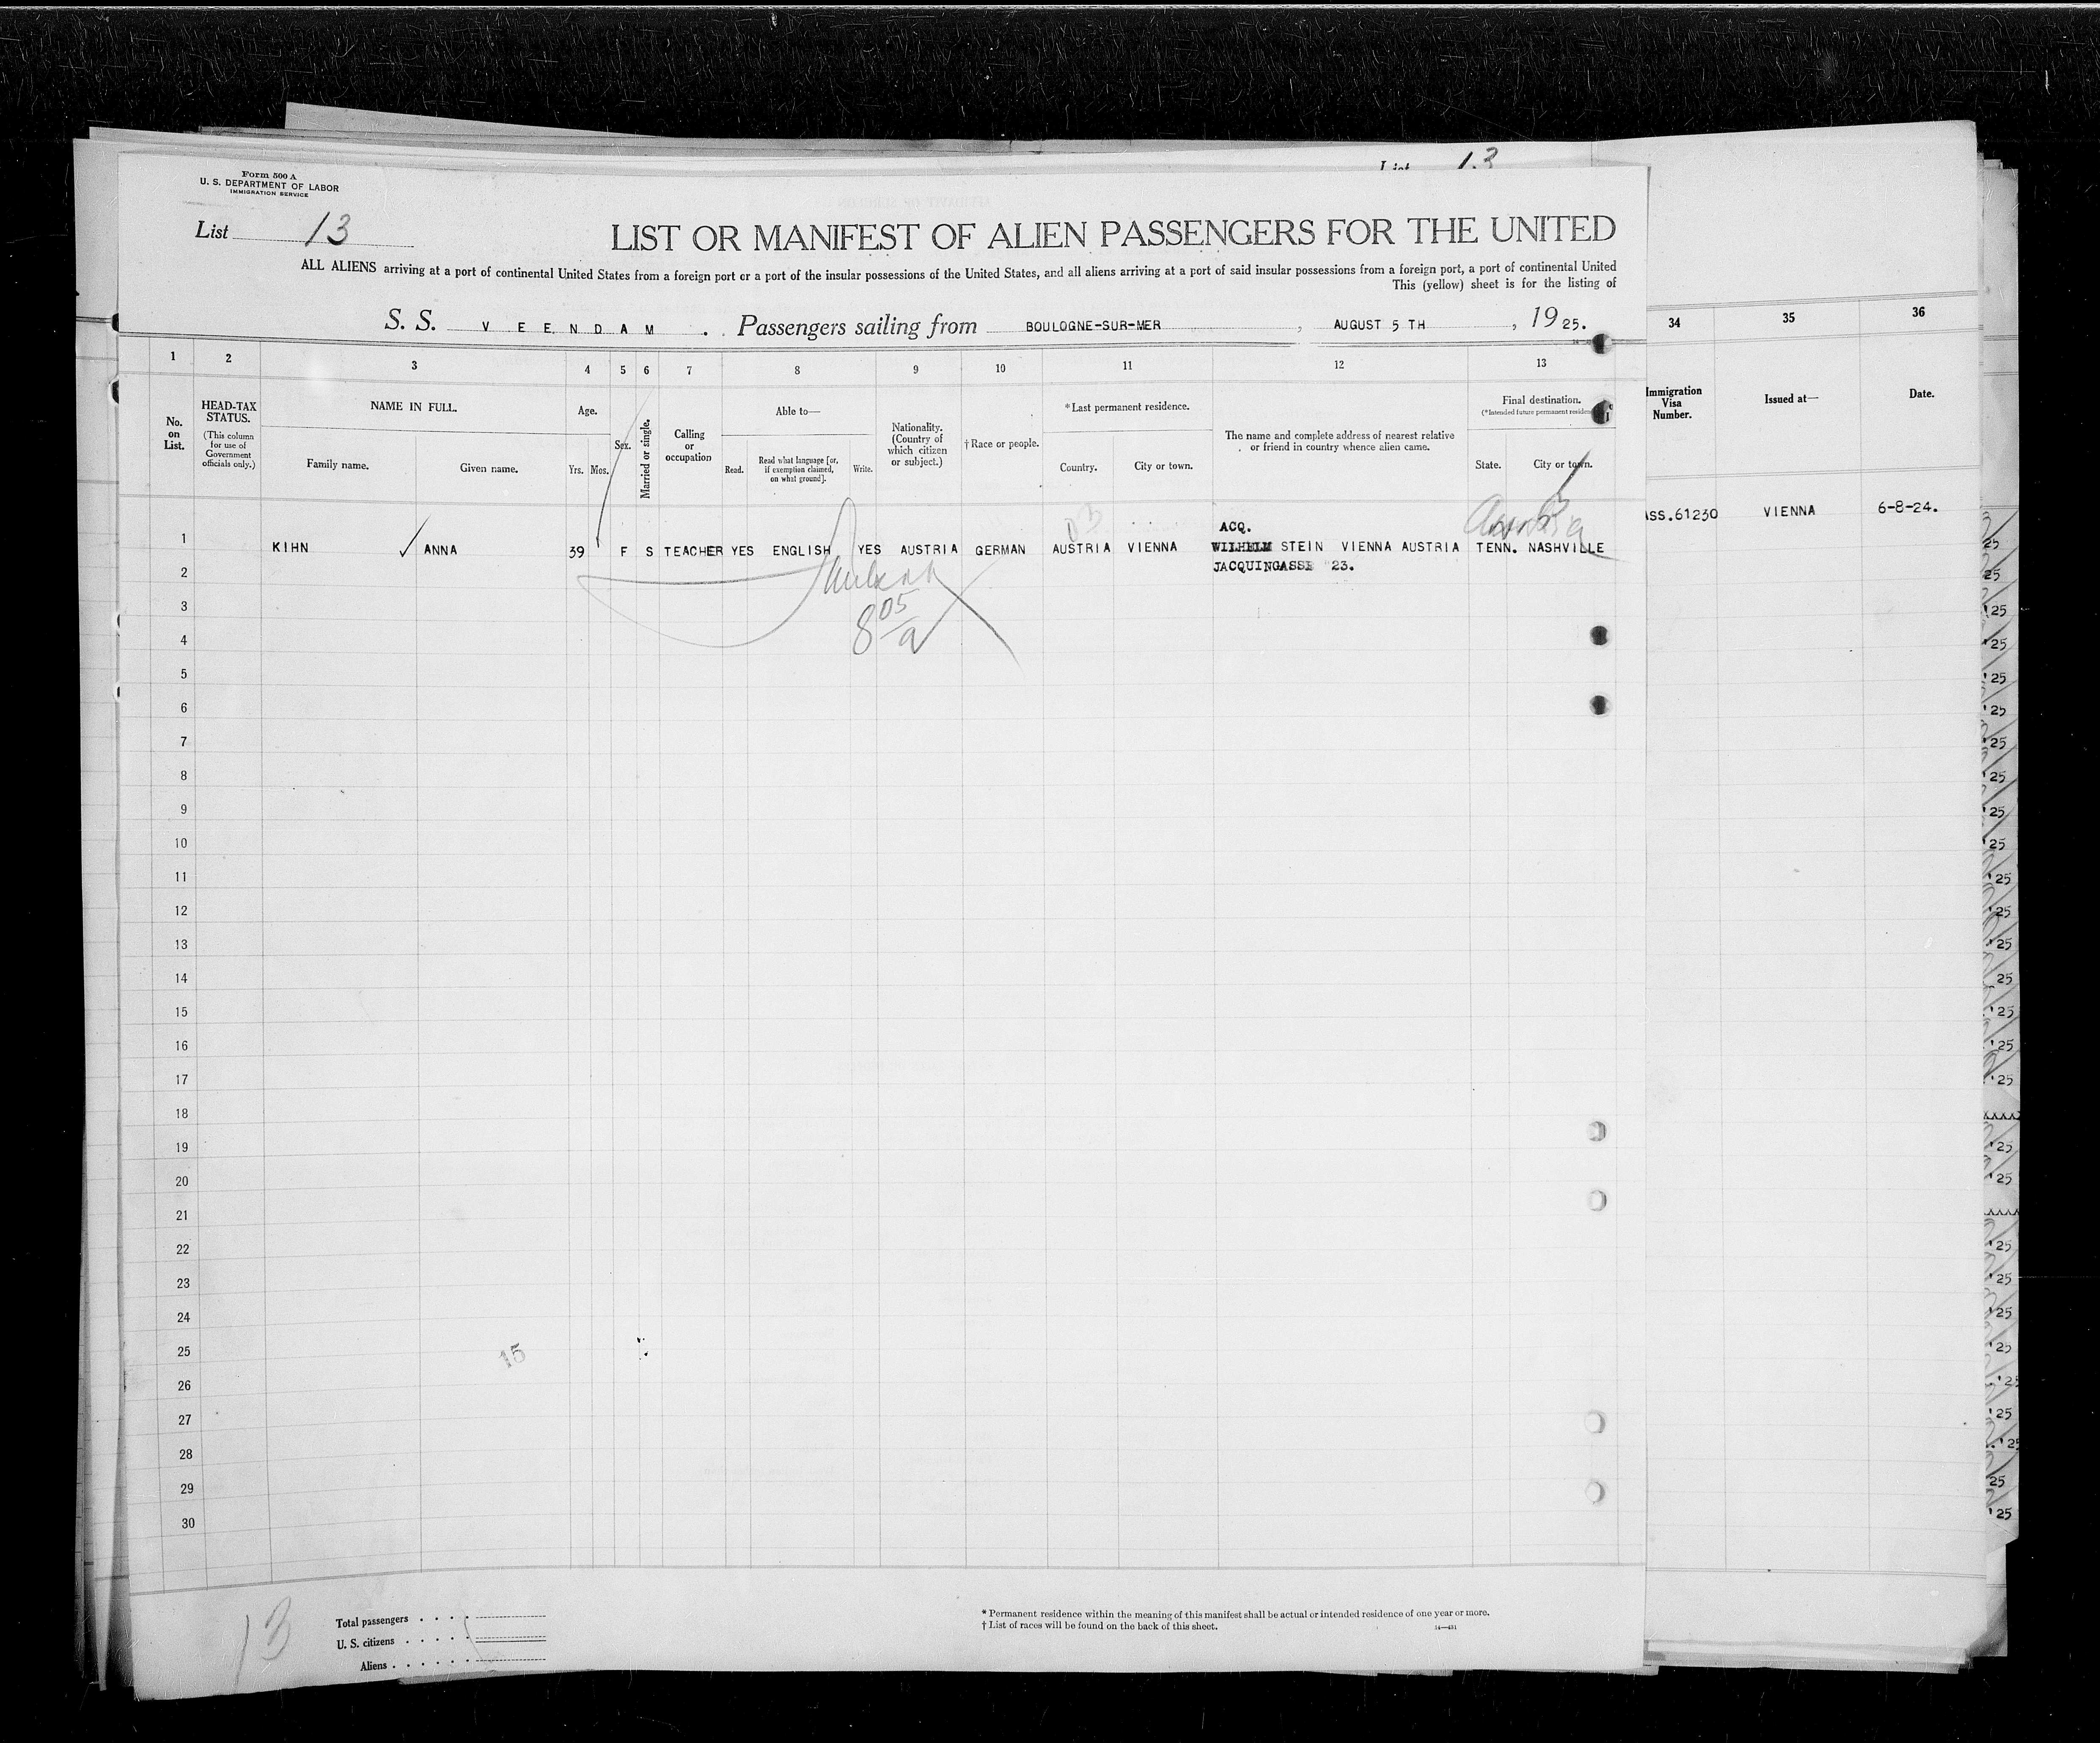 Form 500 A
U. S. DEPARTMENT OF LABOR
IMMIGRATION SERVICE
List 13
List 13
LIST OR MANIFEST OF ALIEN PASSENGERS FOR THE UNITED
ALL ALIENS arriving at a port of continental United States from a foreign port or a port of the insular possessions of the United States, and all aliens arriving at a port of said insular possessions from a foreign port, a port of continental United
This (yellow) sheet is for the listing of
S. S. VEENDAM. Passengers sailing from BOULOGNE-SUR-MER, AUGUST 5 TH, 1925.
1 2 3 4 5 6 7 8 9 10 11 12 13 34 35 36
No. on List.
HEAD-TAX STATUS.
(This column for use of Government officials only.)
NAME IN FULL.
Family name. Given name.
Age.
Yrs. Mos.
Sex.
Married or single.
Calling or occupation
Able to—
Read. Read what language [or, if exemption claimed, on what ground]. Write.
Nationality. (Country of which citizen or subject.)
†Race or people.
*Last permanent residence.
Country. City or town.
The name and complete address of nearest relative or friend in country whence alien came.
Final destination.
(*Intended future permanent
State. City or town.
Immigration Visa Number.
Issued at—
Date.
ACQ.
1 KIHN ANNA 39 F S TEACHER YES ENGLISH YES AUSTRIA GERMAN AUSTRIA VIENNA WILHELM STEIN VIENNA AUSTRIA TENN. NASHVILLE
JACQUINGASSE 23.
61230 VIENNA 6-8-24.
8 05/a
2
3
4
5
6
7
8
9
10
11
12
13
14
15
16
17
18
19
20
21
22
23
24
25
15
26
27
28
29
30
13
Total passengers
U. S. citizens
Aliens
* Permanent residence within the meaning of this manifest shall be actual or intended residence of one year or more.
† List of races will be found on the back of this sheet.
14—431